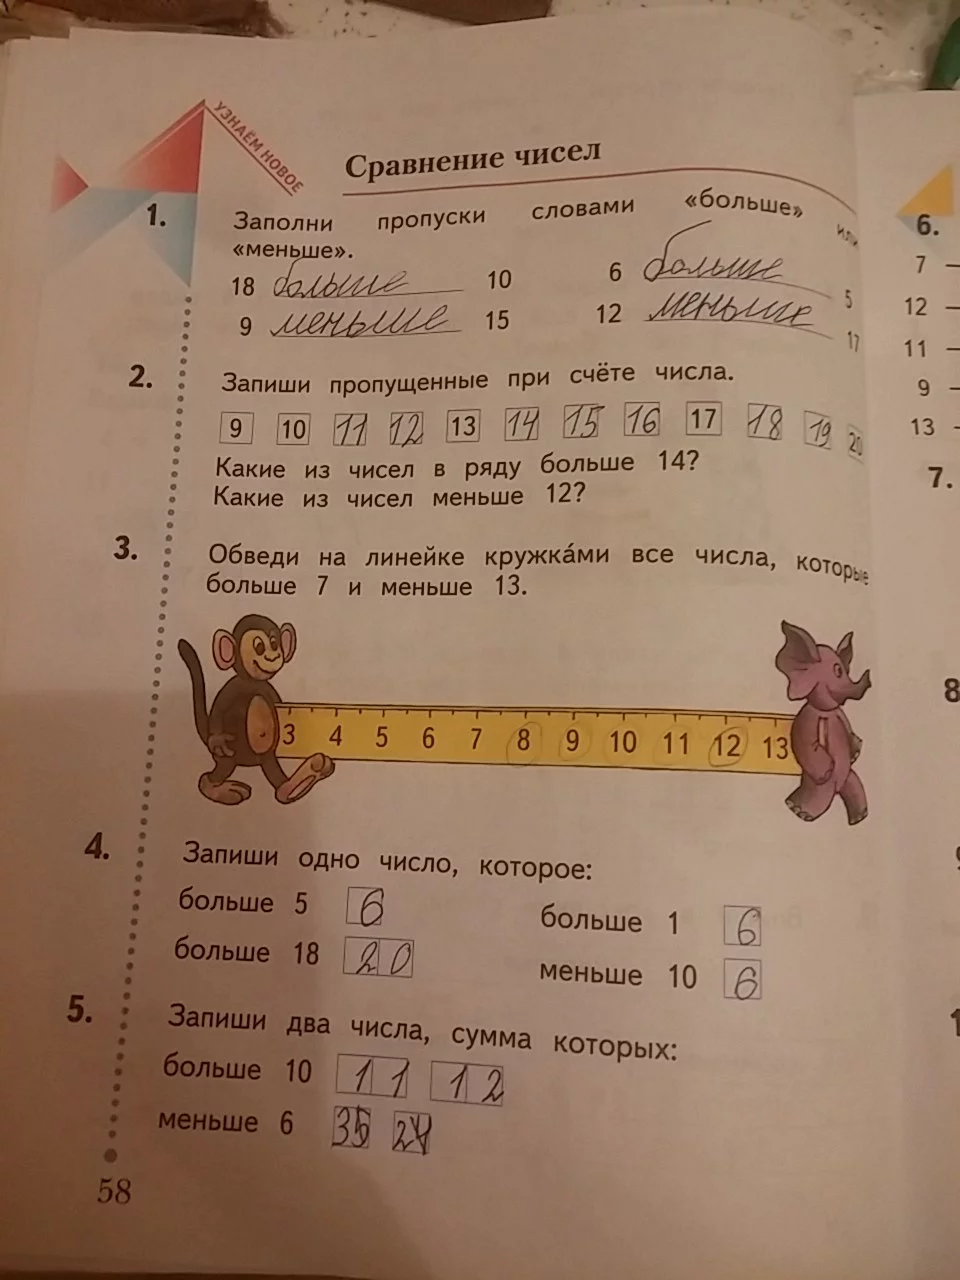 УЗНАЁМ НОВОЕ
Сравнение чисел
1. Заполни пропуски словами «больше» или
«меньше».
18 больше 10 6 больше 5
9 меньше 15 12 меньше 17
2. Запиши пропущенные при счёте числа.
9 10 11 12 13 14 15 16 17 18 19 20
Какие из чисел в ряду больше 14?
Какие из чисел меньше 12?
3. Обведи на линейке кружка́ми все числа, которые
больше 7 и меньше 13.
3 4 5 6 7 8 9 10 11 12 13
4. Запиши одно число, которое:
больше 5 6 больше 1 6
больше 18 20 меньше 10 6
5. Запиши два числа, сумма которых:
больше 10 11 12
меньше 6
58
6.
7 –
12 –
11 –
9 –
13 –
7.
8